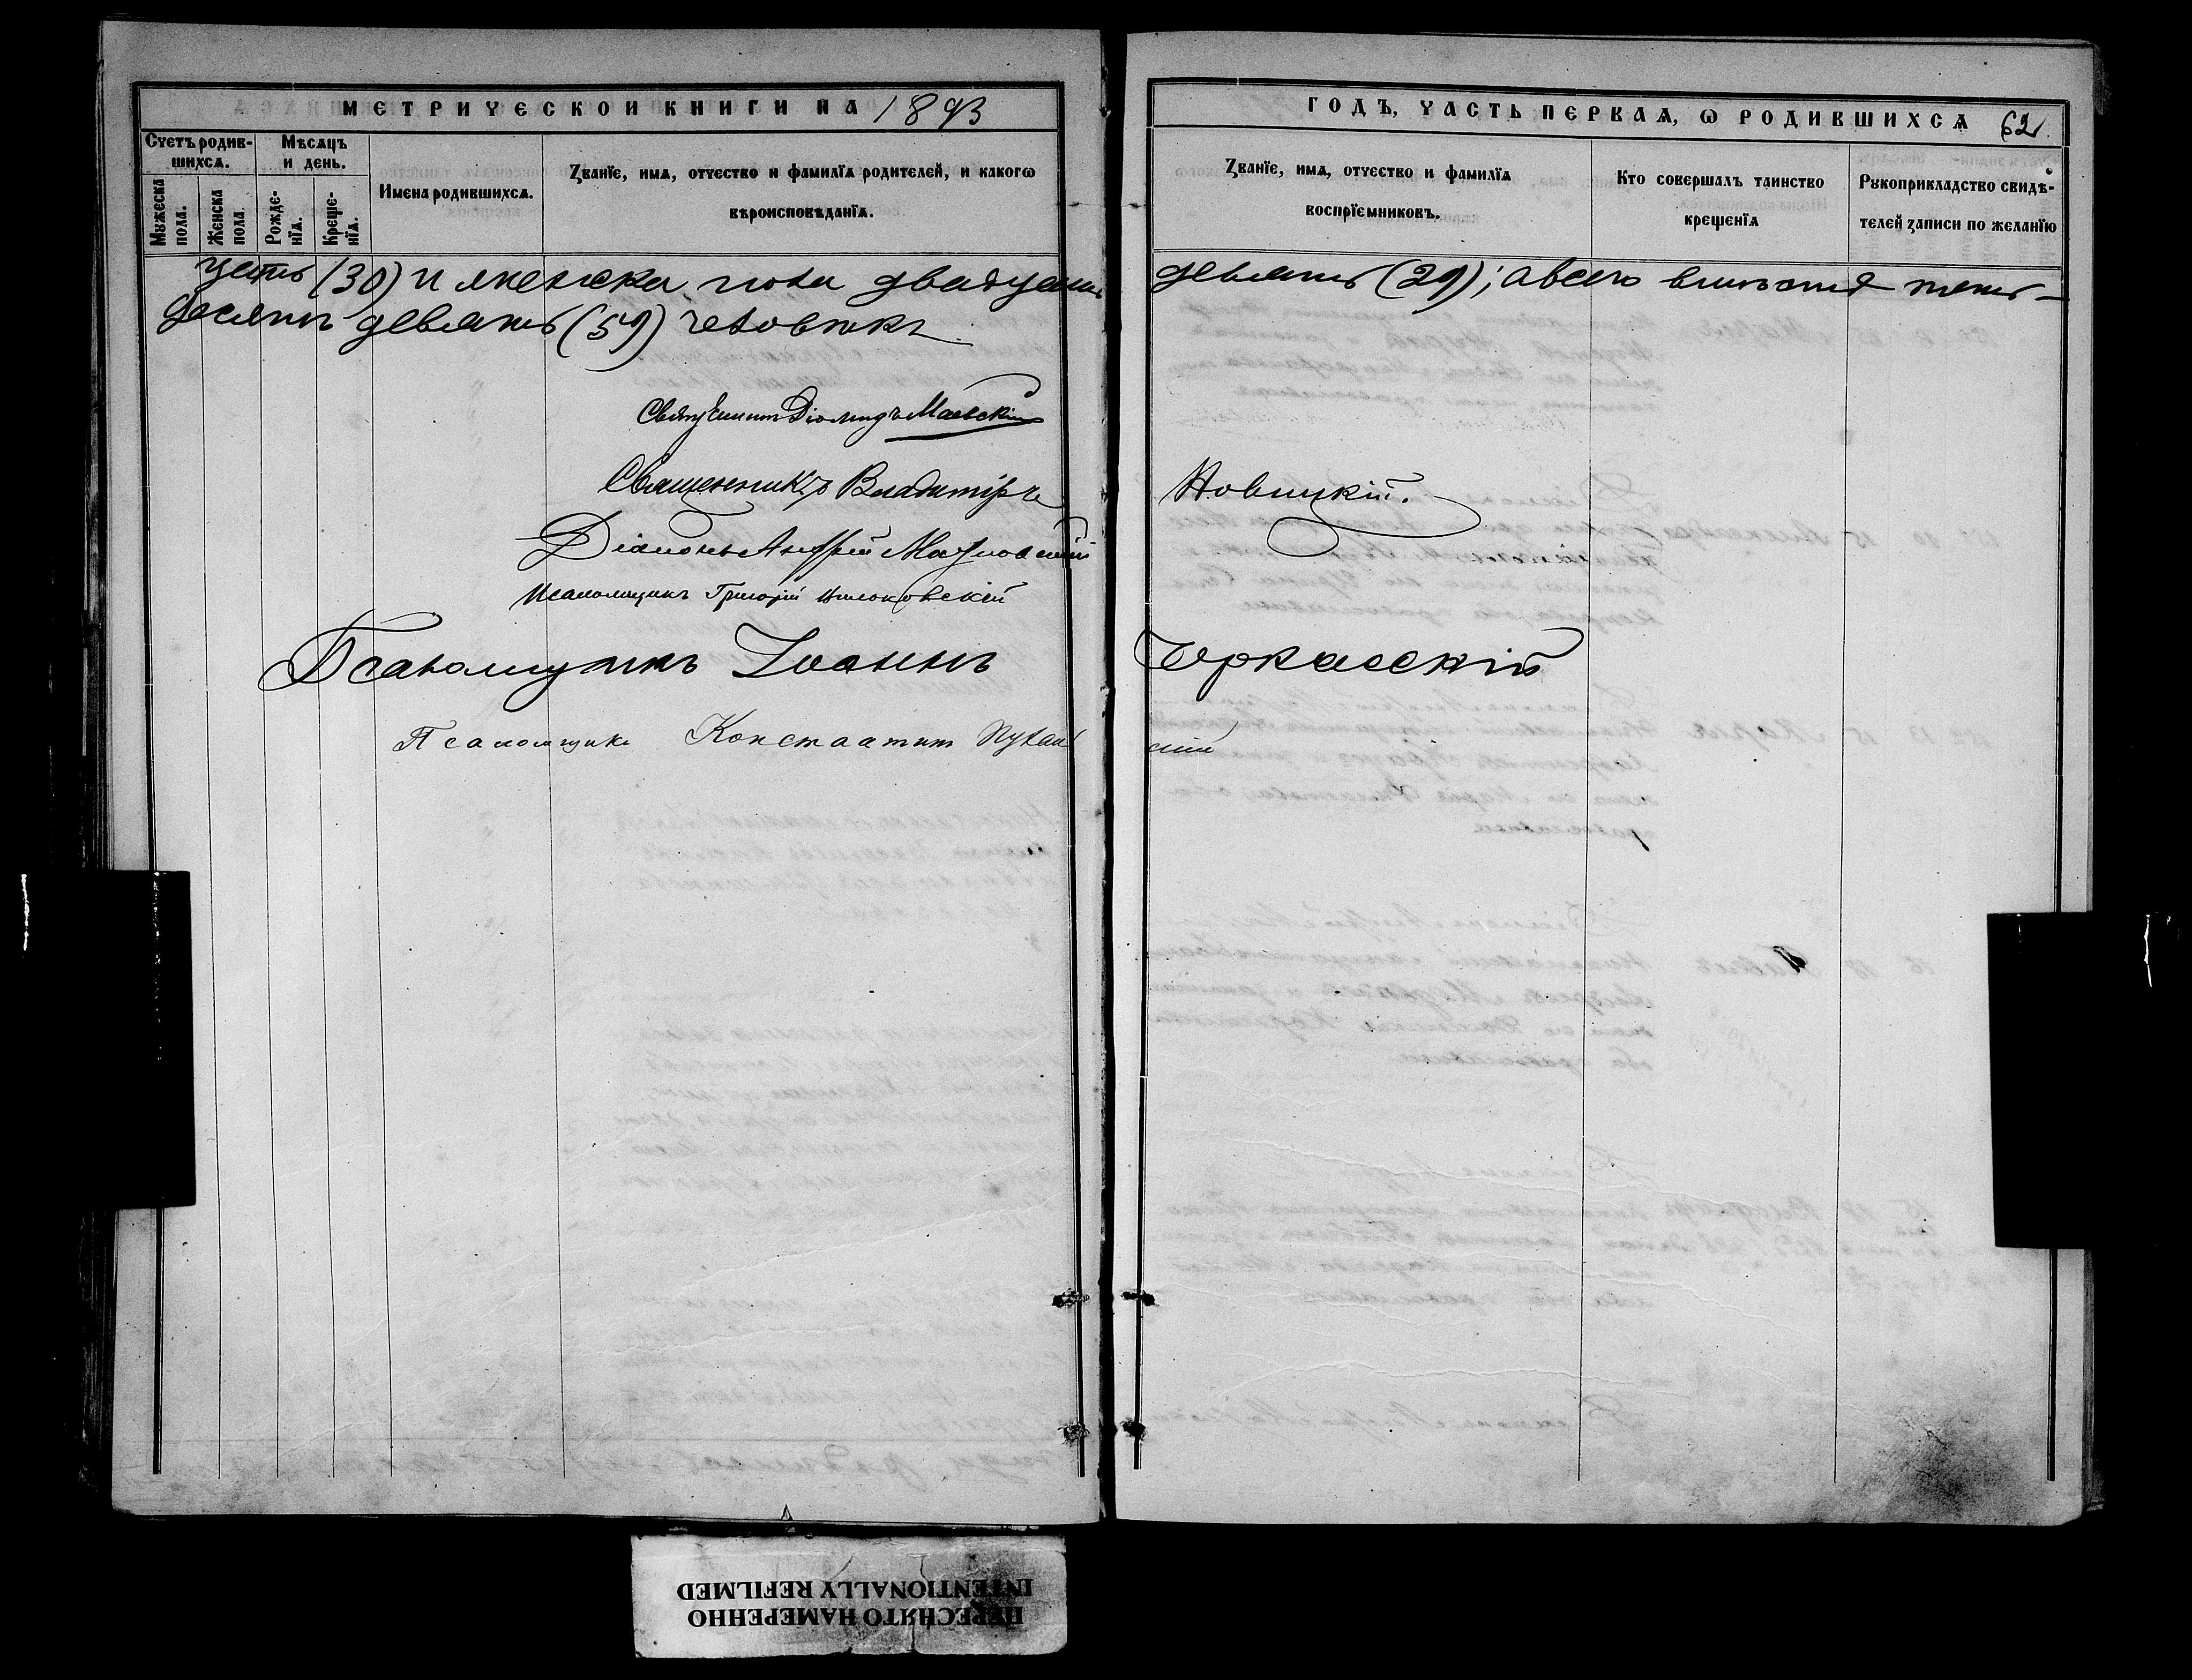 МЕТРИЧЕСКОЙ КНИГИ НА 1893 ГОДЪ, ЧАСТЬ ПЕРВАѦ, Ѡ РОДИВШИХСѦ 62
Счетъ родив-
шихсѧ.
Мѣсѧцъ
и день.
Мужеска
пола.
Женска
пола.
Рожде-
нїѧ.
Креще-
нїѧ.
Имена родившихсѧ.
Званїе, имѧ, отчество и фамилїѧ родителей, и какогѡ
вѣроисповѣданїѧ.
Званїе, имѧ, отчество и фамилїѧ
воспрїемниковъ.
Кто совершалъ таинство
крещенїѧ
Рукоприкладство свидѣ-
телей записи по желанїю
цать (30) и женска пола двадцать девять (29); а всего вместе пять-
десятъ девять (59) человѣкъ.
Священникъ Діомидъ Маевскій
Священникъ Владиміръ Новицкій.
Діаконъ Андрей
Псаломщикъ Григорій
Псаломщикъ Іоаннъ Черкасскій
Псаломщикъ Констаатин
ПЕРЕСНЯТО НАМЕРЕННО
INTENTIONALLY REFILMED